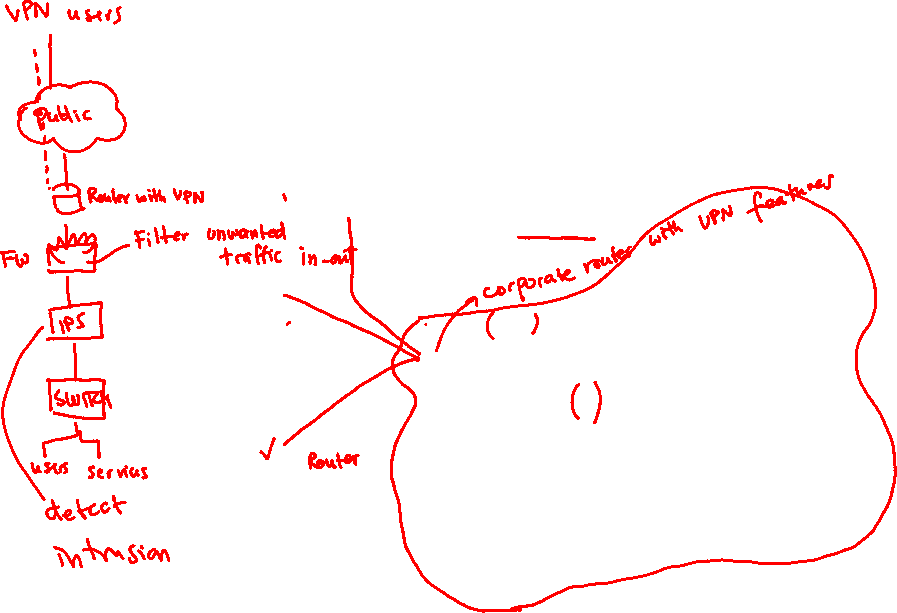 VPN users
public
Router with VPN
FW
Filter unwanted
traffic in-out
IPS
SWITCH
users
services
detect
intrusion
corporate router with VPN features
Router